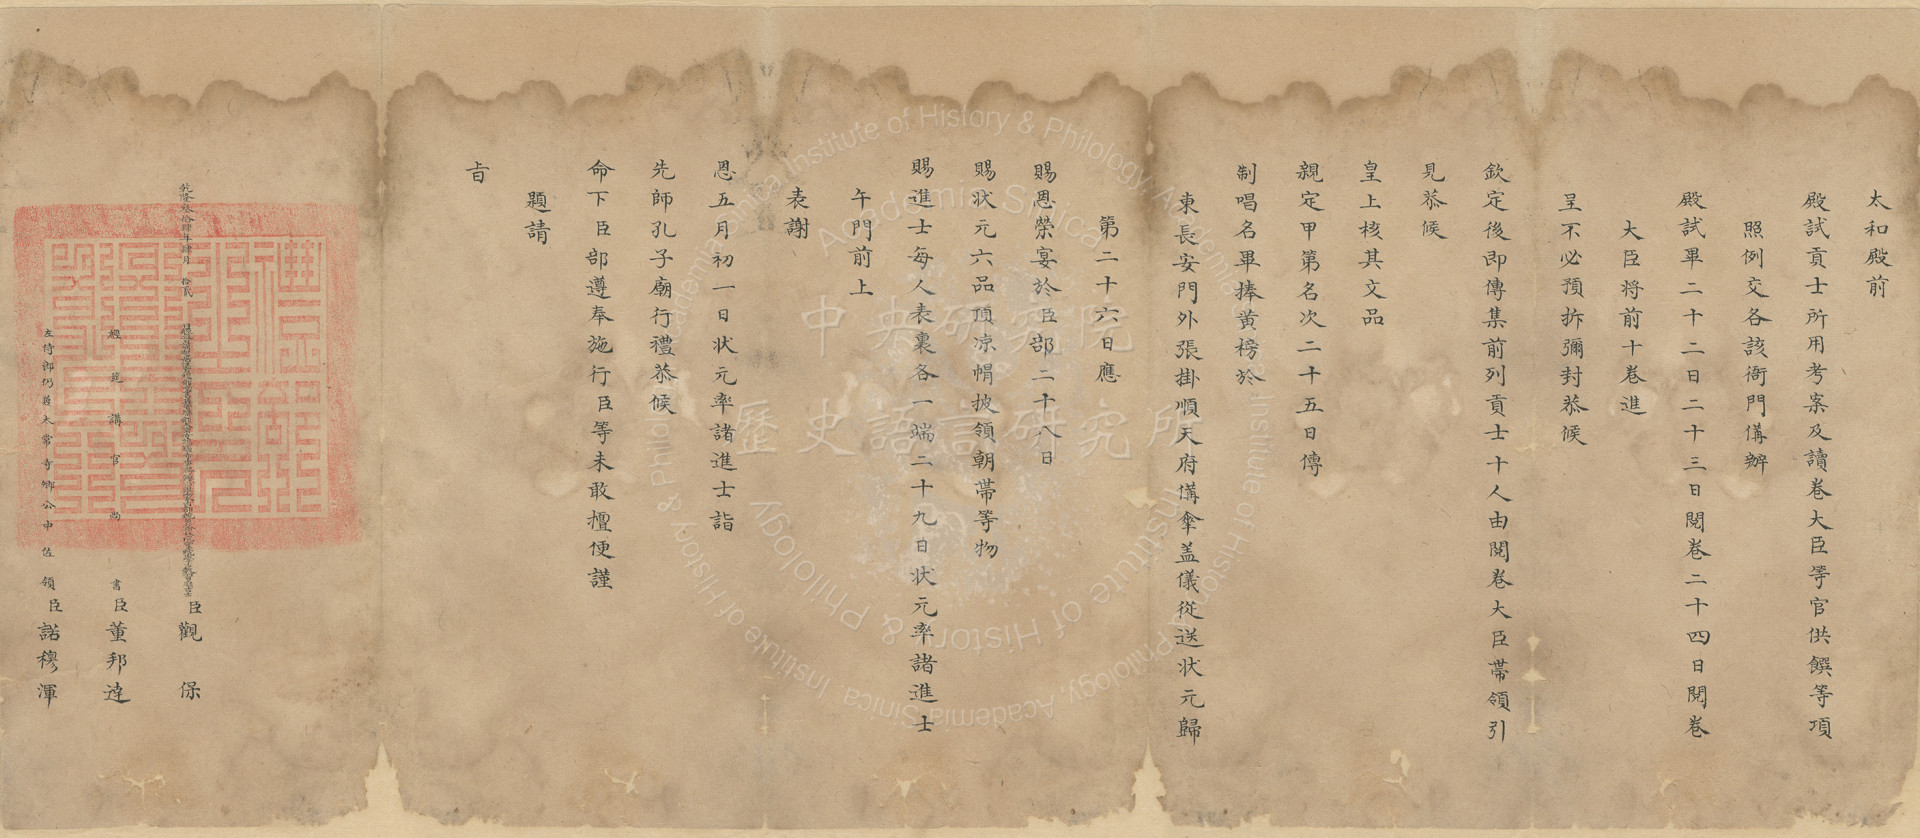 太和殿前
殿試貢士所用考案及讀卷大臣等官供饌等項
照例交各該衙門備辦
殿試畢二十二日二十三日閱卷二十四日閱卷
大臣将前十卷進
呈不必預拆彌封恭候
欽定後即傳集前列貢士十人由閱卷大臣帶領引
見恭候
皇上核其文品
親定甲第名次二十五日傳
制唱名畢捧黄榜於
東長安門外張掛順天府俻傘盖儀從送状元歸
第二十六日應
賜恩榮宴於臣部二十八日
賜状元六品頂凉帽披領朝帶等物
賜進士每人表裏各一端二十九日状元率諸進士
午門前上
表謝
恩五月初一日状元率諸進士詣
先師孔子廟行禮恭候
命下臣部遵奉施行臣等未敢擅便謹
題請
旨
乾隆叁拾肆年肆月 拾 臣觀保
經筵講官尚書臣董邦達
左侍郎仍兼太常寺卿公中佐領臣諾穆渾
中央研究院
歷史語言研究所
Academia Sinica
Institute of History & Philology, Academia Sinica